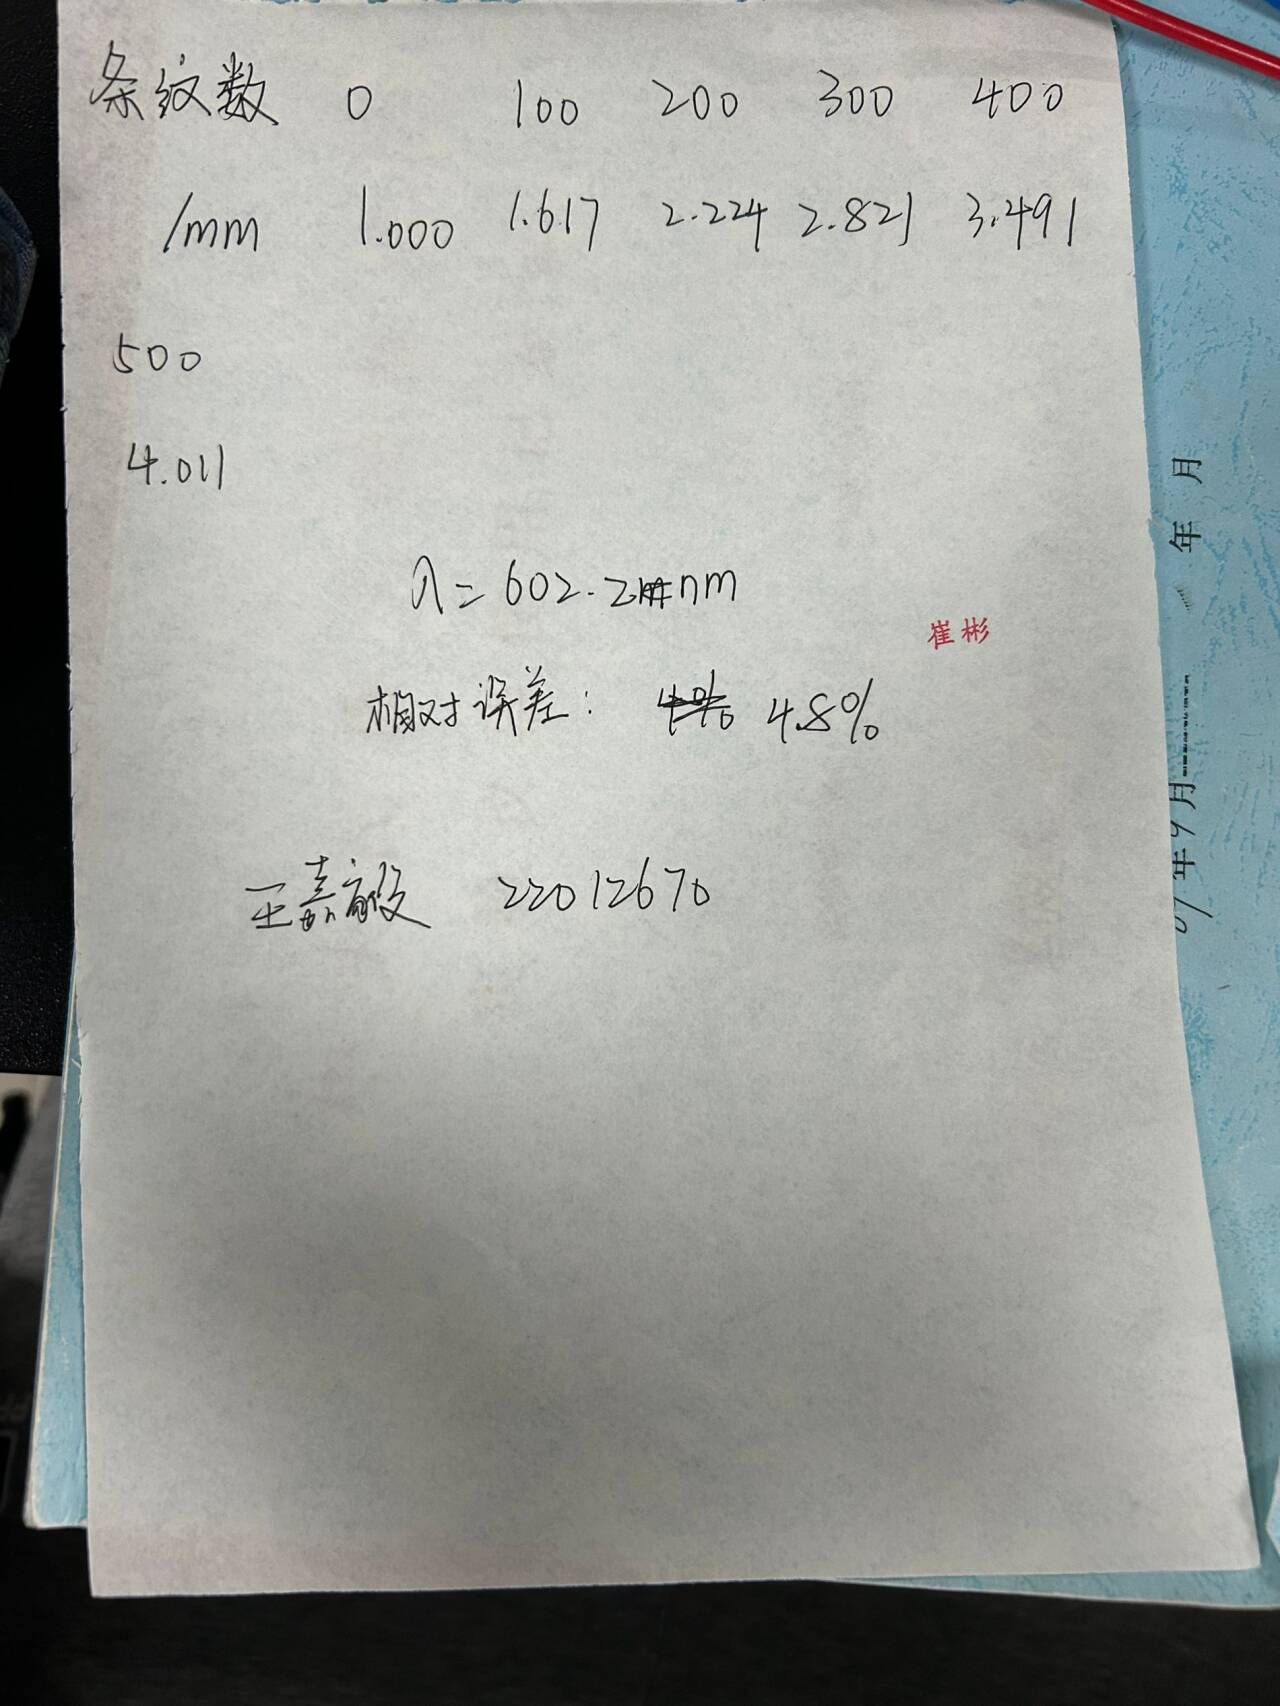 条纹数 0 100 200 300 400
/mm 1.000 1.617 2.224 2.821 3.491
500
4.011
λ=602.2nm
崔彬
相对误差: 4.8%
王嘉毅 22012670
年 月
年9月